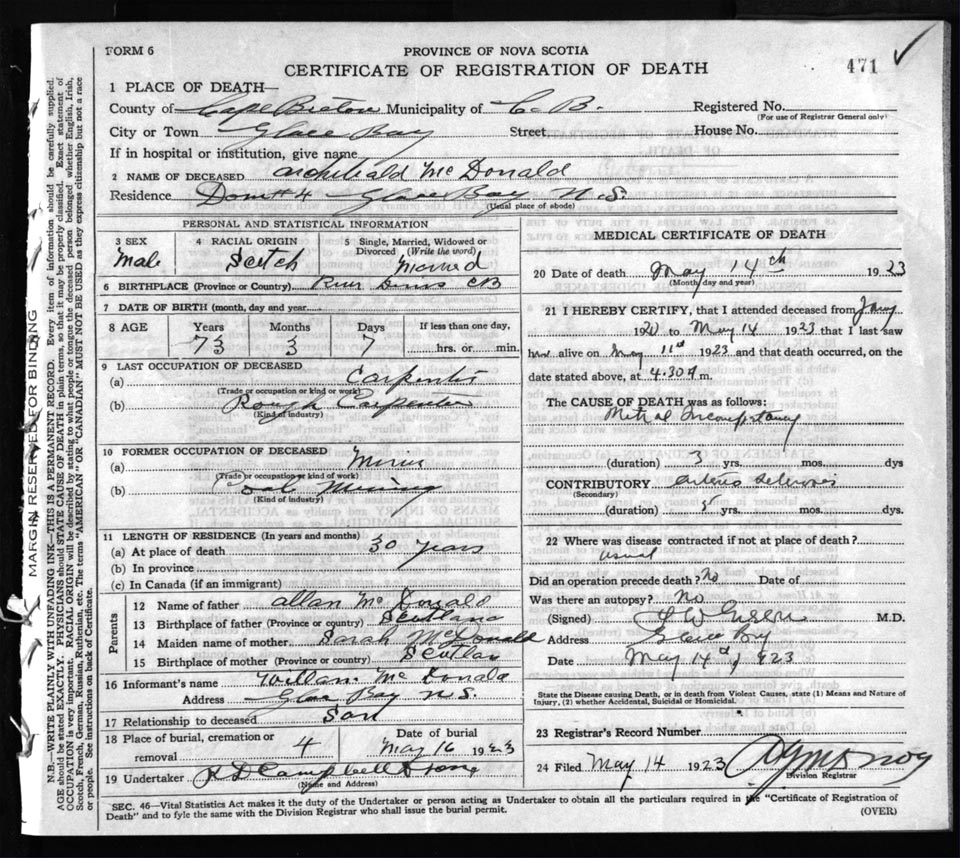 FORM 6
PROVINCE OF NOVA SCOTIA
CERTIFICATE OF REGISTRATION OF DEATH
471
1 PLACE OF DEATH—
County of Cape Breton Municipality of C. B. Registered No.
(For use of Registrar General only)
City or Town Glace Bay Street House No.
If in hospital or institution, give name
2 NAME OF DECEASED Archibald McDonald
Residence Dom #4 Glace Bay N.S.
(Usual place of abode)
PERSONAL AND STATISTICAL INFORMATION
3 SEX
Male
4 RACIAL ORIGIN
Scotch
5 Single, Married, Widowed or
Divorced (Write the word)
Married
6 BIRTHPLACE (Province or Country) River Denis CB
7 DATE OF BIRTH (month, day and year)
8 AGE Years Months Days If less than one day,
73 3 7 hrs. or min.
9 LAST OCCUPATION OF DECEASED
(a) Carpenter
(Trade or occupation or kind of work)
(b) Rough Carpenter
(Kind of industry)
10 FORMER OCCUPATION OF DECEASED
(a) Miner
(Trade or occupation or kind of work)
(b) Coal Mining
(Kind of industry)
11 LENGTH OF RESIDENCE (In years and months)
(a) At place of death 30 years
(b) In province
(c) In Canada (if an immigrant)
Parents
12 Name of father Allan McDonald
13 Birthplace of father (Province or country) Scotland
14 Maiden name of mother Sarah McDonald
15 Birthplace of mother (Province or country) Scotlan
16 Informant's name William McDonald
Address Glace Bay N.S.
17 Relationship to deceased Son
18 Place of burial, cremation or removal 4 Date of burial
May 16 1923
19 Undertaker Campbell & Sons
(Name and Address)
MEDICAL CERTIFICATE OF DEATH
20 Date of death May 14th 1923
(Month, day and year)
21 I HEREBY CERTIFY, that I attended deceased from Jany
1920 to May 14 1923 that I last saw
him alive on May 11th 1923 and that death occurred, on the
date stated above, at 4.30 A m.
The CAUSE OF DEATH was as follows:
Mitral Incompetancy
(duration) 3 yrs. mos. dys
CONTRIBUTORY Arterio sclerosis
(Secondary)
(duration) 5 yrs. mos. dys.
22 Where was disease contracted if not at place of death?
usual
Did an operation precede death? No Date of
Was there an autopsy? No
(Signed) Green M.D.
Address Glace Bay
Date May 14th 1923
State the Disease causing Death, or in death from Violent Causes, state (1) Means and Nature of
Injury, (2) whether Accidental, Suicidal or Homicidal.
23 Registrar's Record Number
24 Filed May 14 1923
Division Registrar
SEC. 46—Vital Statistics Act makes it the duty of the Undertaker or person acting as Undertaker to obtain all the particulars required in the "Certificate of Registration of
Death" and to fyle the same with the Division Registrar who shall issue the burial permit.
(OVER)
MARGIN RESERVED FOR BINDING
N.B.—WRITE PLAINLY WITH UNFADING INK—THIS IS A PERMANENT RECORD. Every item of information should be carefully supplied.
AGE should be stated EXACTLY. PHYSICIANS should STATE CAUSE OF DEATH in plain terms, so that it may be properly classified. Exact statement of
OCCUPATION is very important. RACIAL ORIGIN will be described by stating to what people or tongue the deceased person belonged whether English, Irish,
Scotch, French, German, Russian, Ruthenian, etc. The terms "AMERICAN" OR "CANADIAN" MUST NOT BE USED as they express citizenship but not a race
or people. See instructions on back of Certificate.